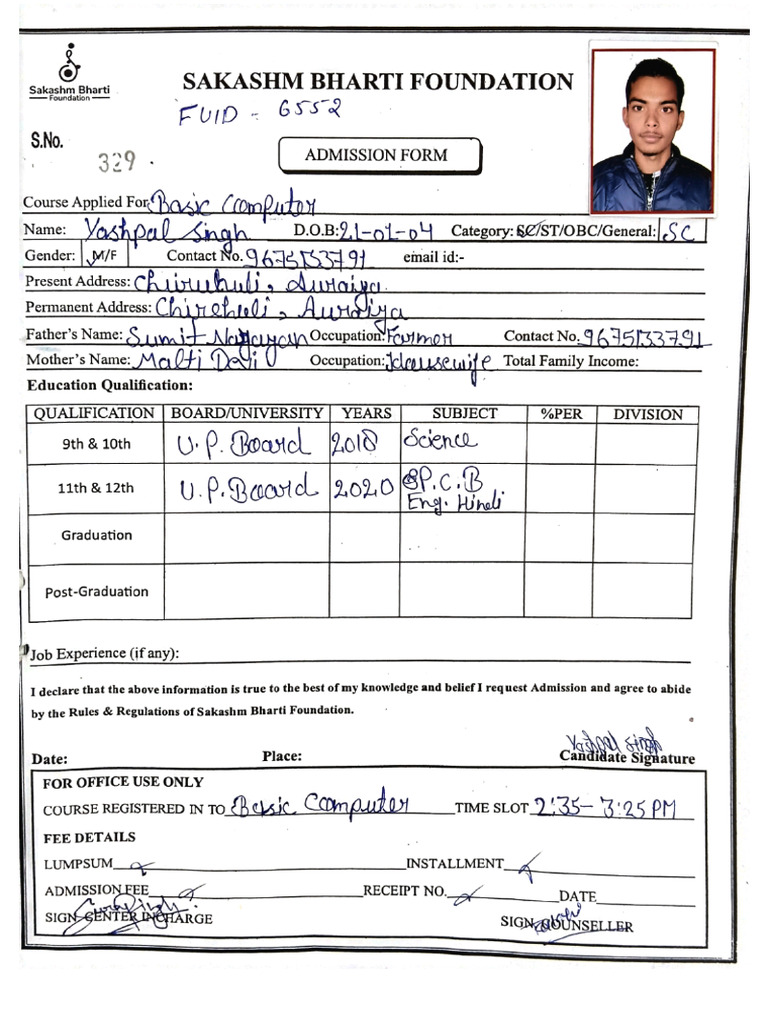 Sakashm Bharti
Foundation
SAKASHM BHARTI FOUNDATION
FUID - 6552
S.No.
329
ADMISSION FORM
Course Applied For Basic Computer
Name: Yashpal Singh D.O.B: 21-01-04 Category: SC/ST/OBC/General: SC
Gender: M/F Contact No. 9675133791 email id:-
Present Address: Chiruhuli, Auraiya
Permanent Address: Chirehuli, Auraiya
Father's Name: Sumit Narayan Occupation: Farmer Contact No. 9675133791
Mother's Name: Malti Devi Occupation: Housewife Total Family Income:
Education Qualification:
QUALIFICATION BOARD/UNIVERSITY YEARS SUBJECT %PER DIVISION
9th & 10th U.P. Board 2018 Science
11th & 12th U.P. Board 2020 P.C.B
Eng. Hindi
Graduation
Post-Graduation
Job Experience (if any):
I declare that the above information is true to the best of my knowledge and belief I request Admission and agree to abide
by the Rules & Regulations of Sakashm Bharti Foundation.
Yashpal Singh
Date: Place: Candidate Signature
FOR OFFICE USE ONLY
COURSE REGISTERED IN TO Basic Computer TIME SLOT 2:35 - 3:25 PM
FEE DETAILS
LUMPSUM INSTALLMENT
ADMISSION FEE RECEIPT NO. DATE
SIGN CENTER INCHARGE SIGN COUNSELLER